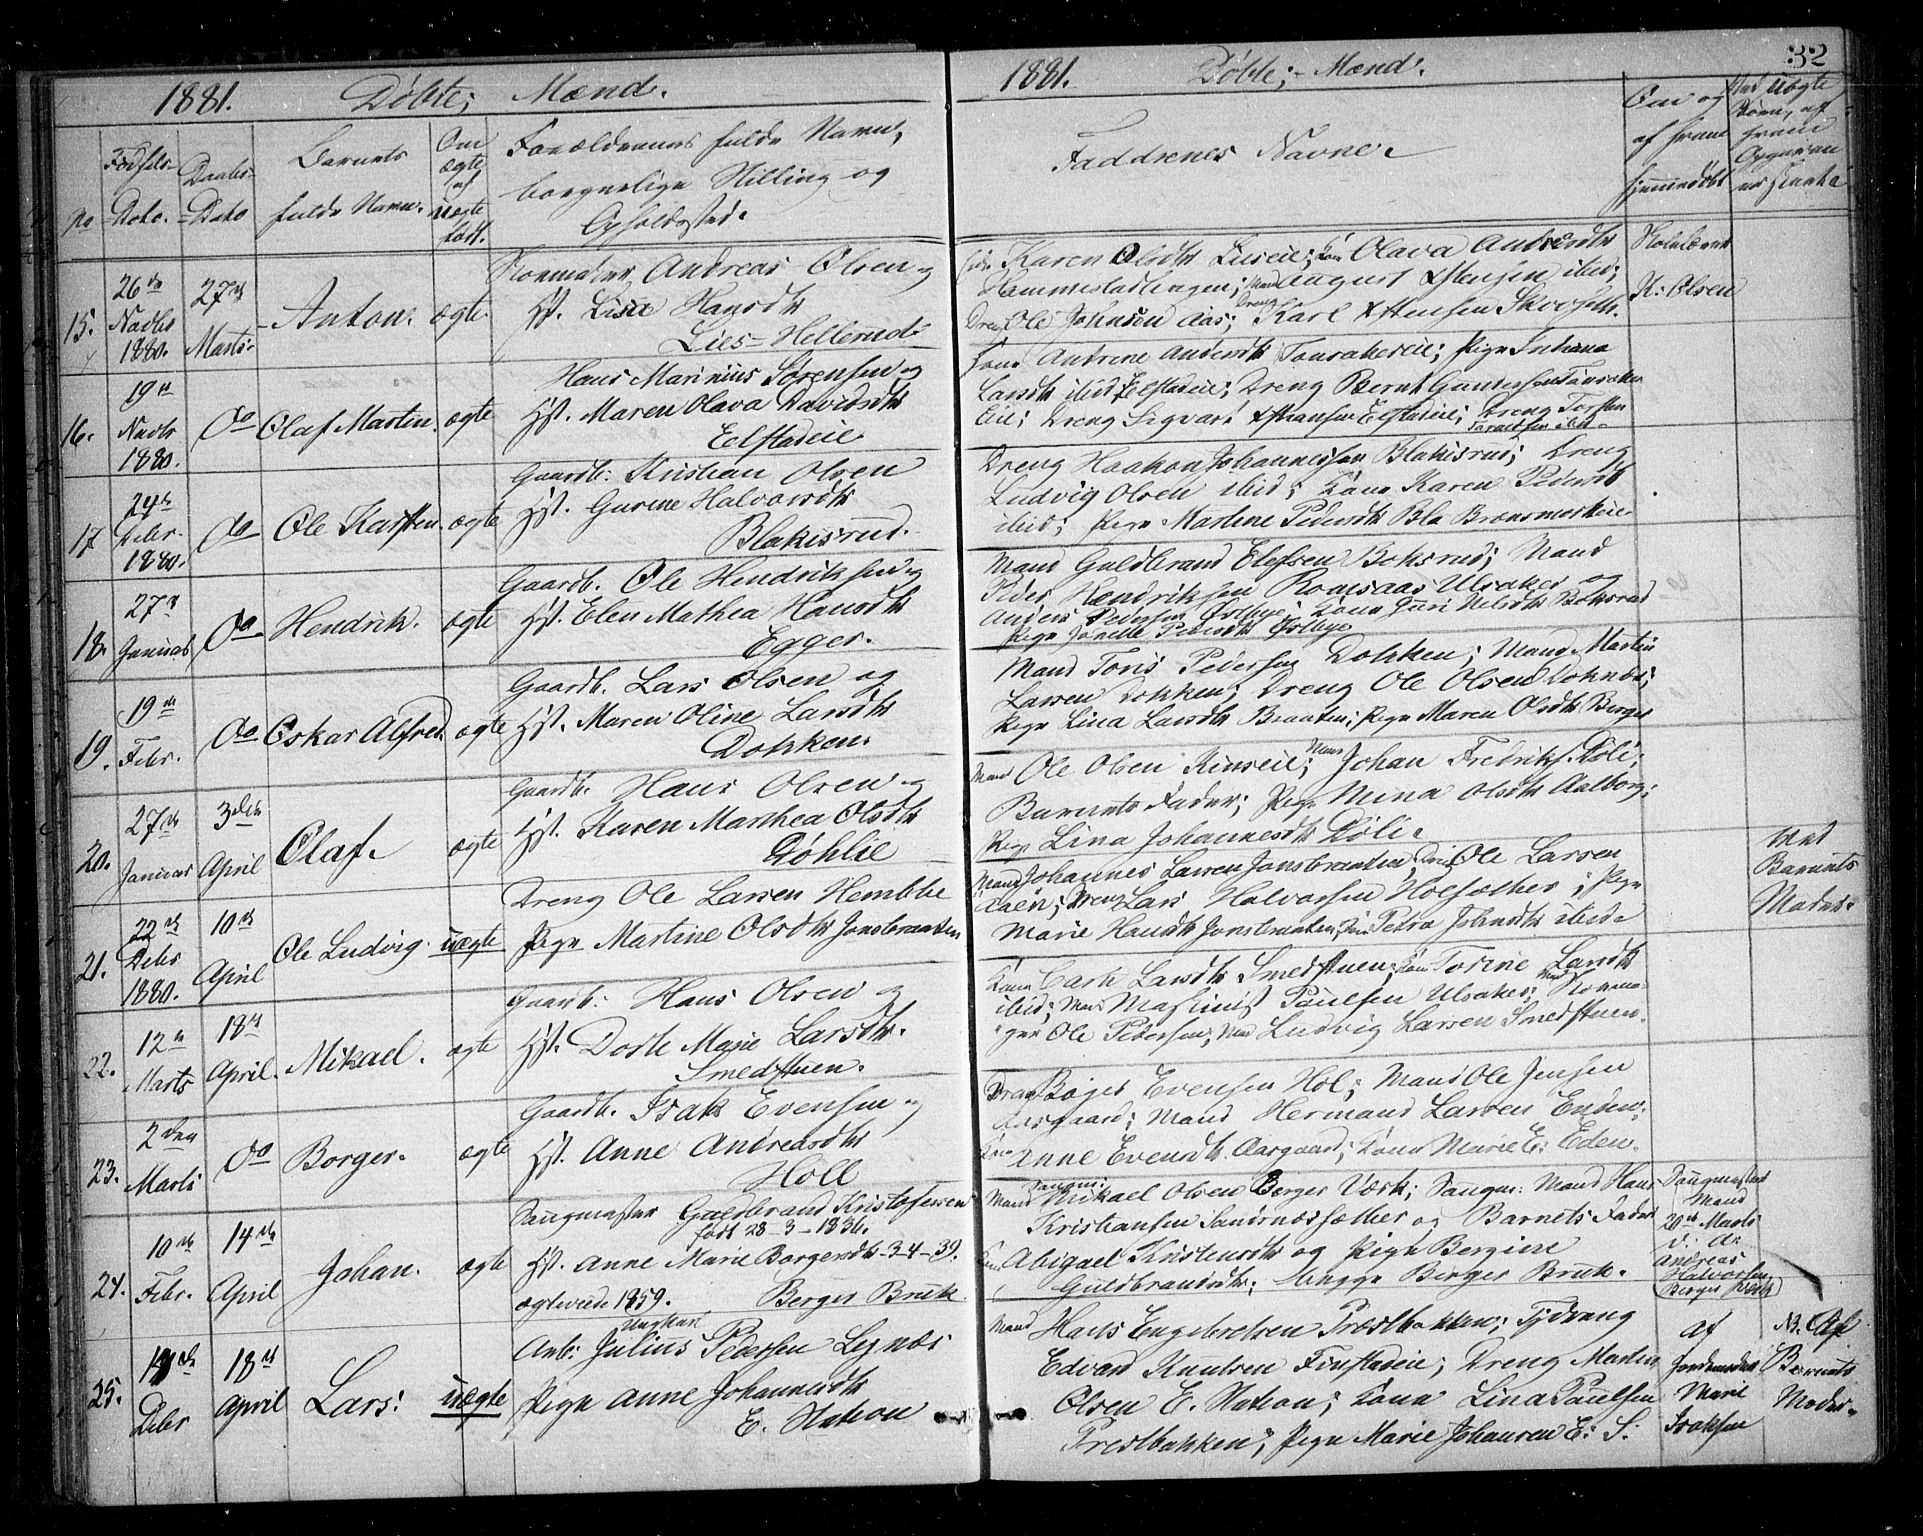 1881. Døbte; Mænd.
No
Fødsels-Dato.
Daabs-Dato
Barnets fulde Navn.
Om ægte el uægte født.
Forældrenes fulde Navn, borgerlige Stilling og Opholdssted.
15. 26de Novbr 1880. 27de Marts Anton. ægte Skomaker Andreas Olsen og
Hst. Lisa Hansdtr
Lies-Hellerud
16. 19de Novbr 1880. Do Olaf Martin. ægte Hans Marinius Sørensen og
Hst. Maren Olava Davidsdtr
Eelstadeie
17 24de Debr 1880. Do Ole Karsten. ægte Gaardb. Kristian Olsen
Hst. Gurine Halvorsdtr
Blakisrud.
18. 27de Januar Do Hendrik. ægte Gaardb. Ole Hendriksen og
Hst. Elen Mathea Hansdtr
Egger.
19. 19de Febr. Do Oskar Alfred. ægte Gaardb. Lars Olsen og
Hst. Maren Oline Larsdtr
Dokken.
20. 27de Januar 3die April Olaf. ægte Gaardb. Hans Olsen og
Hst. Karen Marthea Olsdtr
Døhlie
21. 22de Debr 1880. 10de April Ole Ludvig. uægte Dreng Ole Larsen Hemblie
Pige Martine Olsdtr Jonsbraaten
22. 12te Marts 18de April. Mikael. ægte Gaardb. Hans Olsen og
Hst. Dorte Marie Larsdtr.
Smedstuen.
23. 2den Marts Do Borger. ægte Gaardb. Isak Evensen og
Hst. Anne Andreasdtr
Holl
24. 10de Febr. 14de April Johan. ægte Saugmester Guldbrand Kristofersen
født 28-3-1836.
Hst. Anne Marie Borgersdtr-3-4-39.
ægteviede 1859. Berger Bruk.
25. Debr 18de April Lars: uægte Arb: Ungkarl Julius Pedersen Leznæs
Pige Anne Johannesdtr
E. Station
1881. Døbte;-Mænd. 32
Faddrenes Navne.
Om og af hvem hjemmedøbt
Ved Uægte Børn, af hvem Opgaven er skeet.
Karen Olsdtr Lieseie; Kone Olava Andersdtr Skolelærer
Hammerstadhagen; Mand August Hansen ibid; K: Olsen
Dreng Ole Johnsen Aas; Dreng Karl Hansen
Kone Andrine Andersdtr Tonsakereie; Pige
Larsdtr ibid; Eelstadeie; Dreng Bernt Gundersen Tonsaker
Eie; Dreng Sigvart Hansen Eelstadeie; Dreng Torsten
Dreng Haakon Johannessen Blakisrud; Dreng
Ludvig Olsen ibid; Kone Karen Pedersdtr
ibid; Pige Martine Pedersdtr
Mand Guldbrand Elefsen Boksrud; Mand
Peder Hendriksen Romsaas Ulsaker og
Anders Pedersen Østbye; Kone Guri Nilsdtr Boksrud
Pige Janette Pedersdtr Østbye
Mand Toris Pedersen Dokken; Mand Martin
Larsen Dokken; Dreng Ole Olsen Doknæs;
Pige Lina Larsdtr Braaten; Pige Maren Olsdtr Berger
Mand Ole Olsen Rinseie; Mand Johan Fredriks. Døli;
Barnets Fader; Pige Mina Olsdtr Aalborg;
Pige Lina Johannesdtr Døli.
Mand Johannes Larsen Jonsbraaten; Ole Larsen ved
Aaen; Dreng Lars Halvorsen Holsæther; Pige Barnets
Marie Hansdtr Jonsbraaten; Petra Johnsdtr ibid. Moder.
Kone Larsdtr Smedstuen; Kone Torine Larsdtr
ibid; Mand Mathias Paulsen Ulsaker;
Ole Pedersen; Mand Ludvig Larsen Smedstuen.
Dreng Børger Evensen Hol; Mand Ole Jensen
Aasgaard; Mand Hermand Larsen Enden;
Kone Anne Evensdtr Aasgaard; Kone Marie E. Eden.
Mand Saugm: Mikael Olsen Berger Værk; Saugm: Mand Hans
Kristiansen Sandnæssæther og Barnets Fader
Kone Abigael Kristensdtr og Pige Bergine
Guldbrandsdtr: begge Berger Bruk.
Saugmester Mand 20de Marts d: A: Andreas Halvorsen Berger Bruk
Mand Hans Engebretsen Præstbakken;
Edvard Knutsen Finstadeie; Dreng Martin
Olsen E. Station; Kone Lina Paulsen
Prestbakken; Pige Marie Johansen E: S:
af Jordemoder Marie Isaksen
NB. Af Barnets Moder.